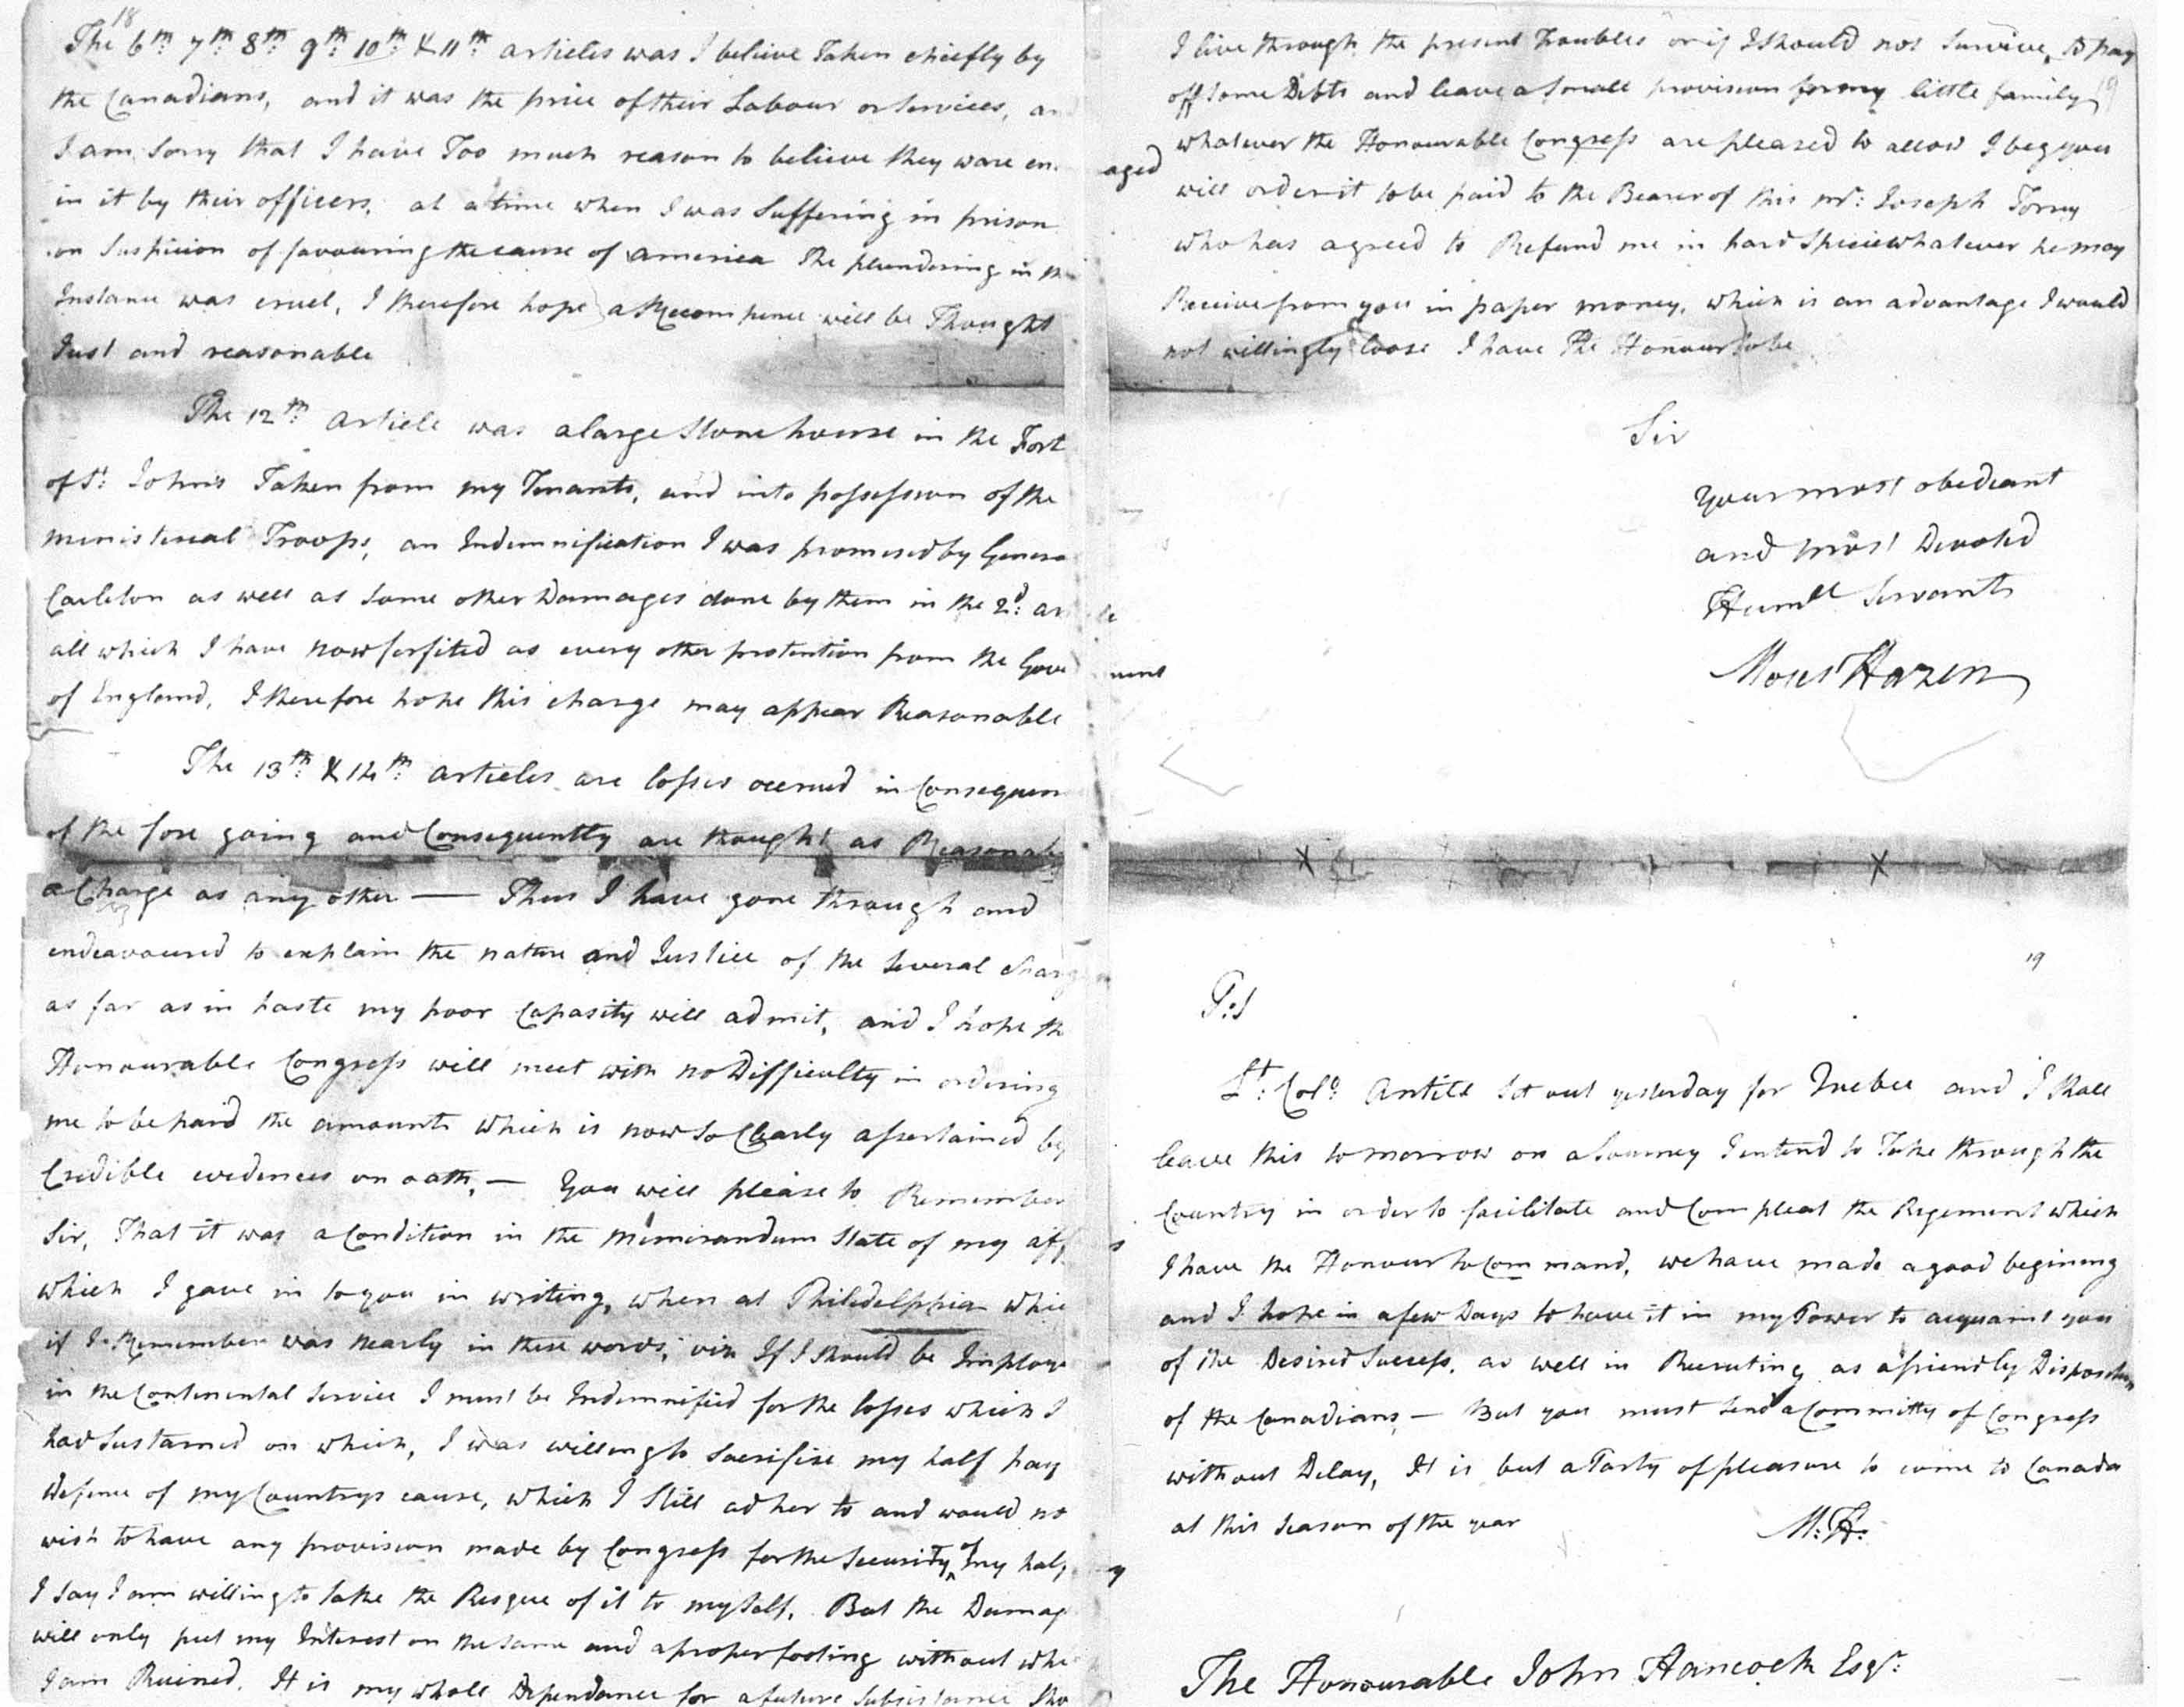 18
The 6th 7th 8th 9th 10th & 11th articles was I believe Taken chiefly by
the Canadians, and it was the price of their Labour or Services, an
I am Sorry that I have Too much reason to believe they ware en
aged
in it by their officers, at a time when I was Suffering in prison
on Suspicion of favouring the cause of america The plundering in th
Instance was cruel, I therefore hope a Recompence will be Thought
Just and reasonable
The 12th article was a large Stone house in the Fort
of St: John's Taken from my Tenants, and into possession of the
ministereal Troops, an Indemnification I was promised by Genera
Carleton as well as some other Damages done by them in the 2d: ar le
all which I have now forfited as every other protention from the Gove ment
of England, I therefore hope this charge may appear Reasonable
The 13th & 14th articles are losses accrued in Consequen
of the fore going and Consequently are thought as Reasonab
a Charge as any other — Thus I have gone through and
endeavoured to explain the nature and Justice of the Several charg
as far as in haste my poor Capasity will admit, and I hope th
Honourable Congress will meet with no Difficulty in ordering
me to be paid the amount which is now so Clearly assertained by
Credible evidences on oath, — You will please to Remember
Sir, That it was a Condition in the Memorandum State of my aff s
which I gave in to you in writing, when at Philidelphia whic
if I Remember was nearly in these words, viz If I should be Imploye
in the Continental Service I must be Indemnified for the losses which I
had Sustained on which, I was willing to Sacrifise my half pay
Defence of my Countrys cause, which I Still adher to and would no
wish to have any provision made by Congress for the Security of my half y
I say I am willing to take the Risque of it to my Self, But the Damag
will only put my Interest on the same and a proper footing without whi
I am Ruined. It is my whole Dependance for a future Subsistance Sho
I live through the present Troubles or if I should not Survive, to pay
off some Debts and leave a Small provision for my little family 19
whatever the Honourable Congress are pleased to allow I beg you
will order it to be paid to the Bearer of this mr: Joseph Torrey
who has agreed to Refund me in hard Specie whatever he may
Receive from you in paper money, which is an advantage I would
not willingly loose I have The Honour to be
Sir
Your most obedeant
and most Devoted
Humll Servant
Moses Hazen
19
P:S
Lt: Colo: Antill Set out yesterday for Quebec and I Shall
leave this to morrow on a Journey I intend to Take through the
Country in order to facilitate and Compleat the Regement which
I have the Honour to Command, we have made a good begining
and I hope in a few Days to have it in my Power to acquaint you
of the Desired Success, as well in Recruting as a friendly Disposition
of the Canadians, — But you must Send a Committy of Congress
without Delay, It is but a Party of pleasure to come to Canada
at this Season of the year
M: H:
The Honourable John Hancock Esqr: